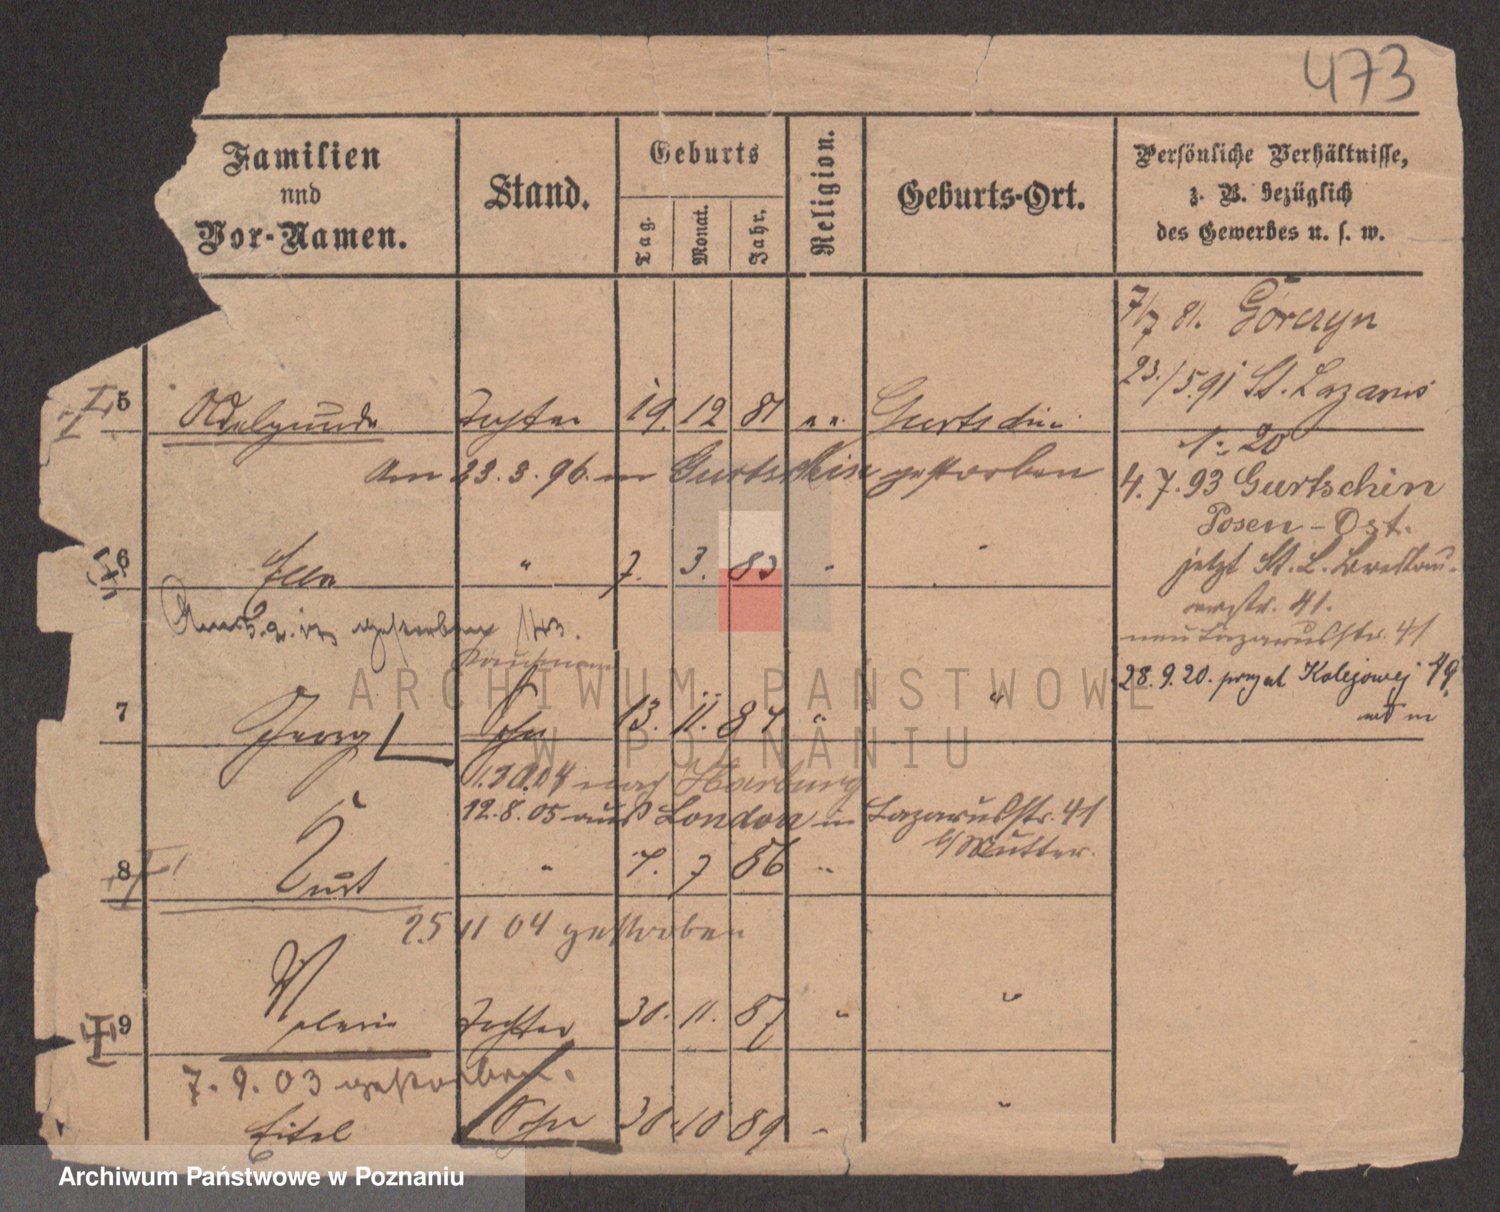 473
Familien
und
Vor-Namen.
Stand.
Geburts
Tag.
Monat.
Jahr.
Religion.
Geburts-Ort.
Persönliche Verhältnisse,
z. B. bezüglich
des Gewerbes u. s. w.
7/7 81. Górczyn
23./5.91 St. Lazarus
5 Adelgunde Tochter 19. 12 81 " " Gurtschin
Am 23.3.96. in Gurtschin gestorben
4.7.93 Gurtschin
Posen-Ost.
jetzt St. L. Breslau-
erstr. 41.
neu Lazarusstr. 41
28.9.20. Kolejowej 49
6 Ella " 7. 3. 83 " "
gestorben
Kaufmann
7 Georg Sohn 13. 11. 84 " "
1.10.04 nach Harburg
12.8.05 aus London in Lazarusstr. 41
b/Mutter.
8 Kurt " 7. 7 86 "
25 11 04 gestorben
9 Valerie Tochter 30. 11. 87 " "
7.9.03 gestorben.
Eitel Sohn 30. 10 89 " "
ARCHIWUM PAŃSTWOWE
W POZNANIU
Archiwum Państwowe w Poznaniu